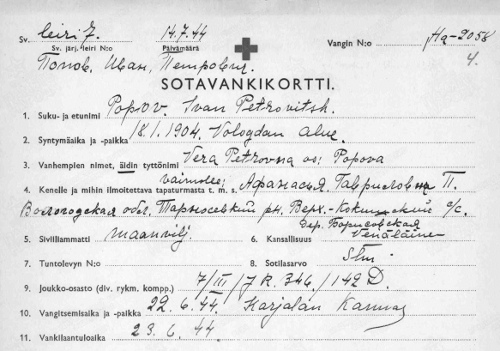 Sv. leiri 7. 14.7.44 Vangin N:o Hq-2058
Sv. järj. leiri N:o Päivämäärä 4.
Попов, Иван, Петрович.
SOTAVANKIKORTTI.
1. Suku- ja etunimi Popov. Ivan Petrovitsh.
2. Syntymäaika ja -paikka 18.1.1904. Vologdan alue.
3. Vanhempien nimet, äidin tyttönimi Vera Petrovna os: Popova
vaimolle:
4. Kenelle ja mihin ilmoitettava tapaturmasta t. m. s. Афанасья Гавриловна П.
Вологодская обл. Тарногский рн. Верх-Кокшенский с/с.
дер. Борисовская
5. Siviiliammatti maanvilj. 6. Kansallisuus Venäläinen
7. Tuntolevyn N:o 8. Sotilasarvo Stm
9. Joukko-osasto (div. rykm. kompp.) 7/III/JR.346/142 D.
10. Vangitsemisaika ja -paikka 22.6.44. Karjalan Kannas
11. Vankilaantuloaika 23.6.44.